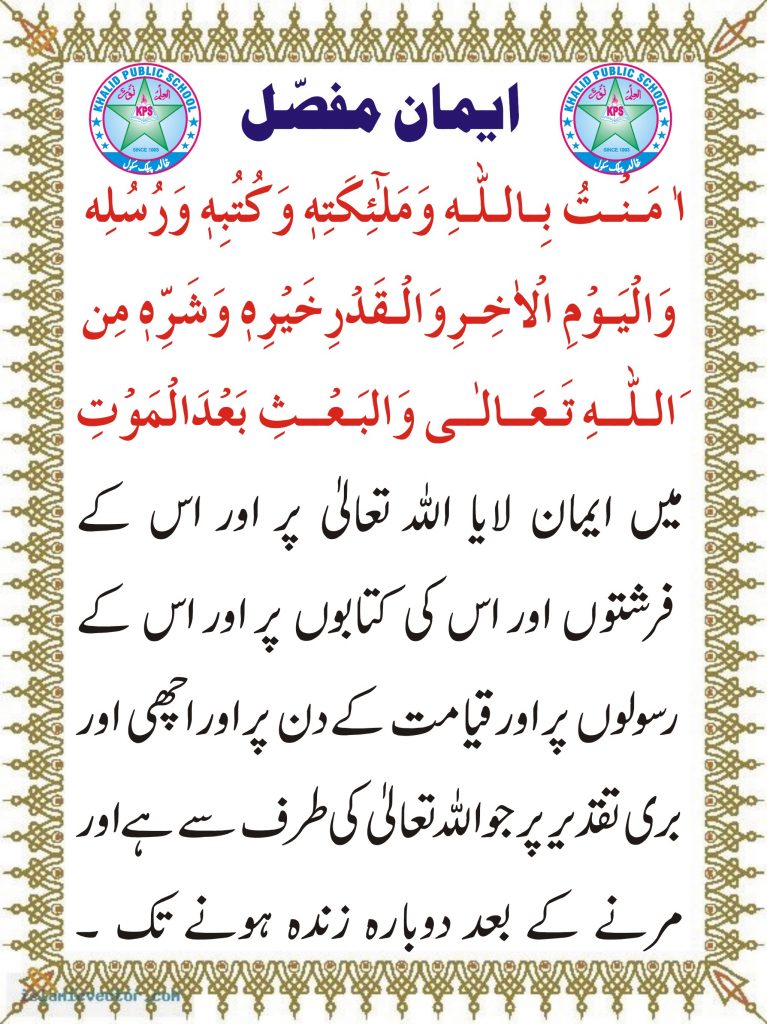 KHALID PUBLIC SCHOOL
KPS
SINCE 1993
خالد پبلک سکول
ایمان مفصّل
KHALID PUBLIC SCHOOL
KPS
SINCE 1993
خالد پبلک سکول
اٰمَنْتُ بِاللّٰهِ وَمَلٰٓئِكَتِهٖ وَكُتُبِهٖ وَرُسُلِه
وَالْيَوْمِ الْاٰخِرِوَالْقَدْرِخَيْرِهٖ وَشَرِّهٖ مِن
َاللّٰهِ تَعَالٰى وَالبَعْثِ بَعْدَالْمَوْتِ
میں ایمان لایا اللہ تعالیٰ پر اور اس کے
فرشتوں اور اس کی کتابوں پر اور اس کے
رسولوں پر اور قیامت کے دن پر اور اچھی اور
بری تقدیر پر جو اللہ تعالیٰ کی طرف سے ہے اور
مرنے کے بعد دوبارہ زندہ ہونے تک ۔
islamicvector.com